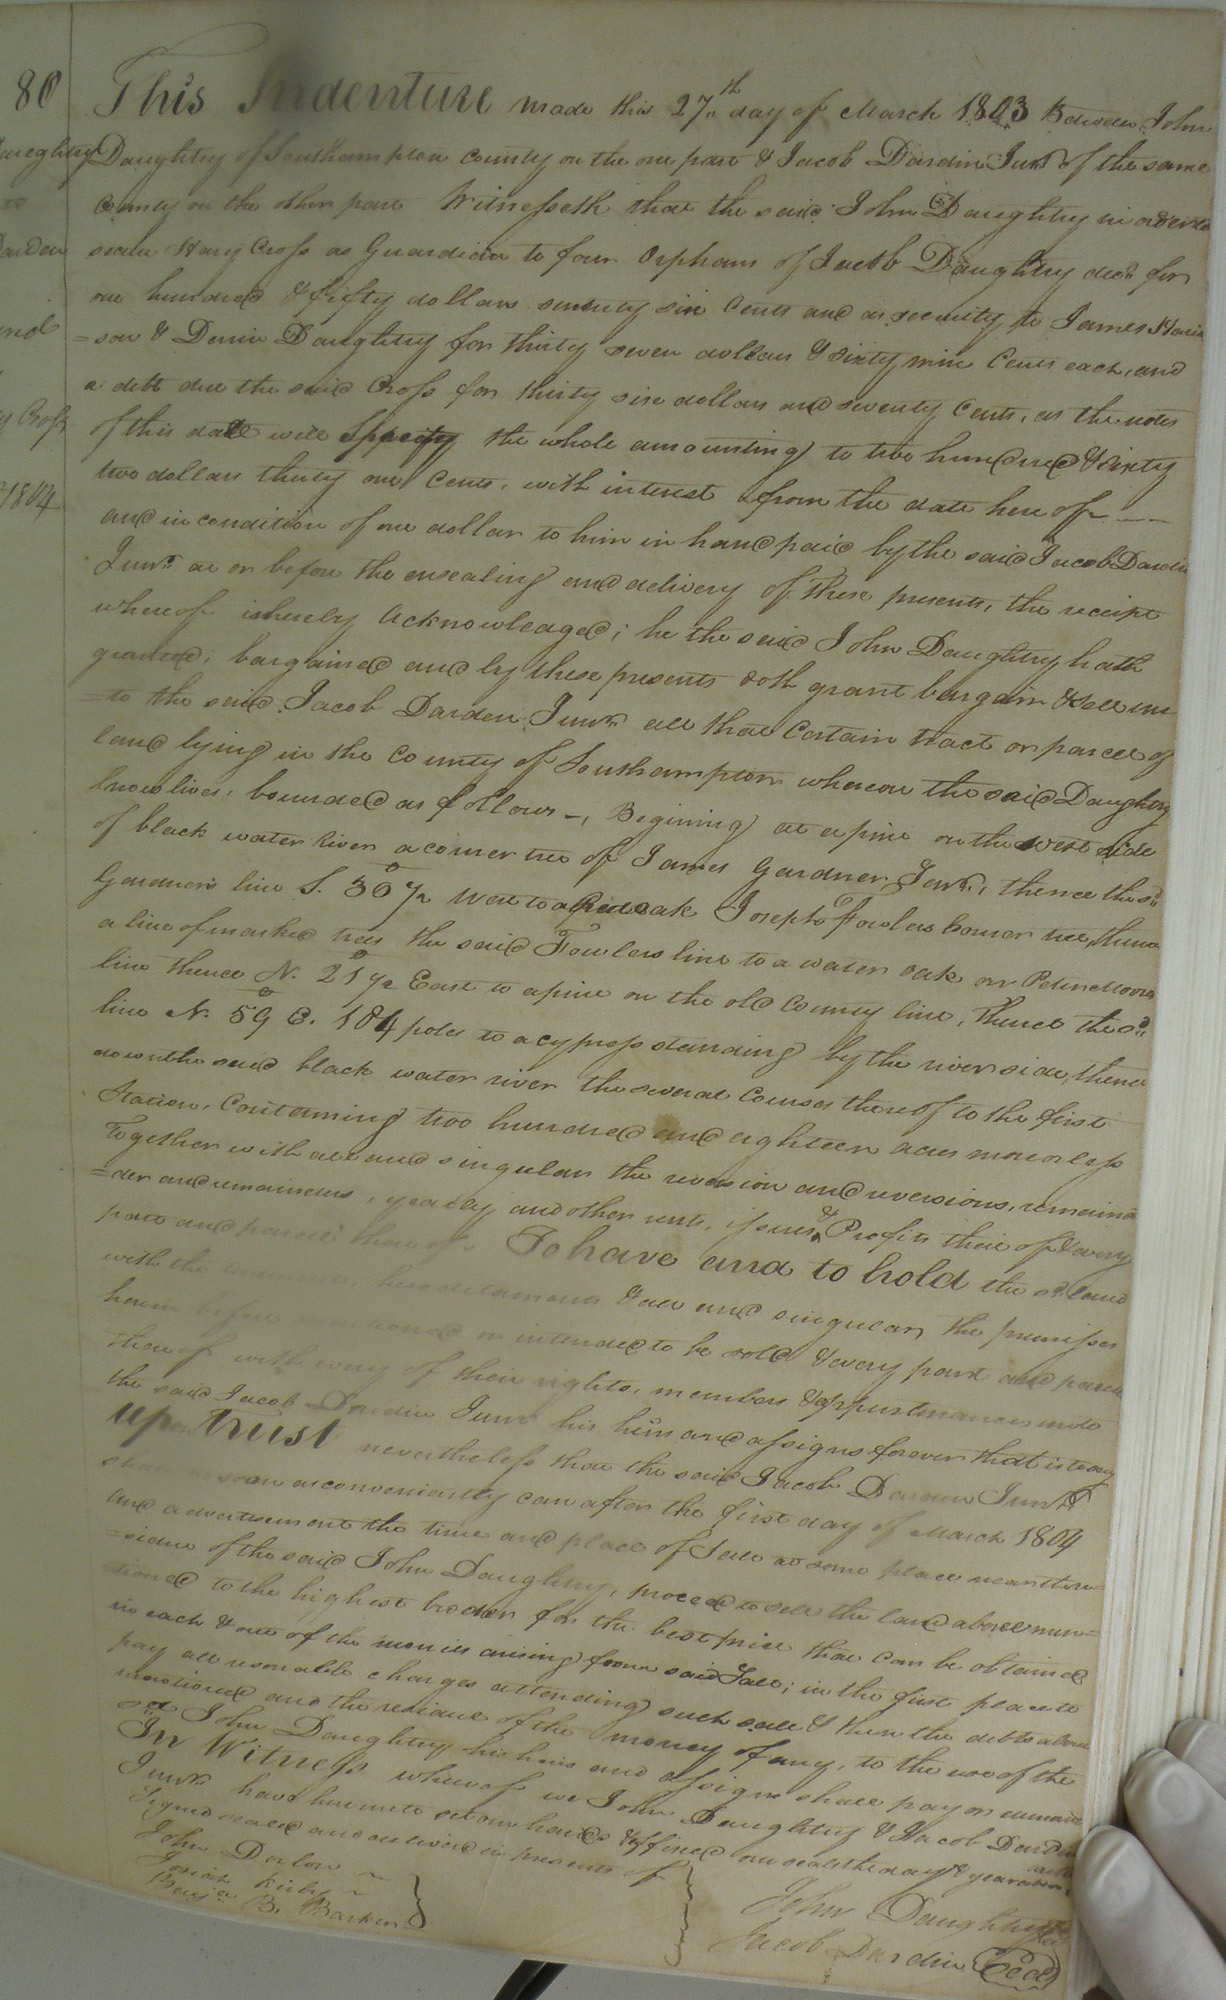 80
This Indenture made this 27th day of March 1803 Between John
Daughtry of Southampton County on the one part & Jacob Dardin Junr. of the same
County on the other part Witnesseth that the said John Daughtry in order to
Hary Cross as Guardian to four Orphans of Jacob Daughtry decd. for
one hundred & fifty dollars seventy six Cents and as security to James Harri
=son & Daughtry for thirty seven dollars & sixty nine Cents each, and
a debt due the said Cross for thirty six dollars and seventy Cents, as the notes
of this date will Specify the whole amounting to two hundred & sixty
two dollars thirty one Cents, with interest from the date here of —
and in condition of one dollar to him in hand paid by the said Jacob Dardin
Junr. at or before the ensealing and delivery of these presents, the receipt
whereof is hereby acknowledged; he the said John Daughtry hath
granted, bargained and by these presents doth grant bargain & sell un
=to the said Jacob Darden Junr. all that Certain tract or parcel of
land lying in the County of Southampton whereon the said Daughtry
now lives, bounded as follows —, Begining at a pine on the west side
of black water River a corner tree of James Gardner Junr., thence the sd.
Gardners line S. 30½ West to a Red oak Joseph Fowlers corner tree, thence
a line of marked trees the said Fowlers line to a water oak on Peter Moors
line thence N. 21½ East to a pine on the old County line, thence the sd.
line N. 59 E. 184 poles to a cypress standing by the river side, thence
down the said black water river the several Courses thereof to the first
Station, Containing two hundred and eighteen acres more or less
Together with all and singular the reversion and reversions, remain
=der and remainders, yearly and other rents, issues & Profits thereof & every
part and parcel thereof. To have and to hold the sd. land
with the hereditaments & all and singular the premises
herein before or intended to be sold & every part and parcel
thereof with every of their rights, members & appurtenances unto
the said Jacob Dardin Junr. his heirs and assigns forever that is to say
upon trust nevertheless that the said Jacob Darden Junr.
shall as soon as conveniently can after the first day of March 1804
and advertisement the time and place of Sale at some place near the re=
=sidence of the said John Daughtry, proceed to sell the land above men=
=tioned to the highest bidder for the best price that can be obtained
in each & out of the monies arising from said Sale; in the first place to
pay all reasonable charges attending such sale & then the debts above
mentioned and the residue of the money if any, to the use of the
sd. John Daughtry his heirs and assigns shall pay on demand
In Witness whereof we John Daughtry & Jacob Dardin
Junr. have hereunto set our hands & affixed our seals the day & year above
Signed sealed and delivered in presents of
John Darden
Josiah Kirby
Benja. B. Barker
John Daughtry
Jacob Dardin
Cross
1804